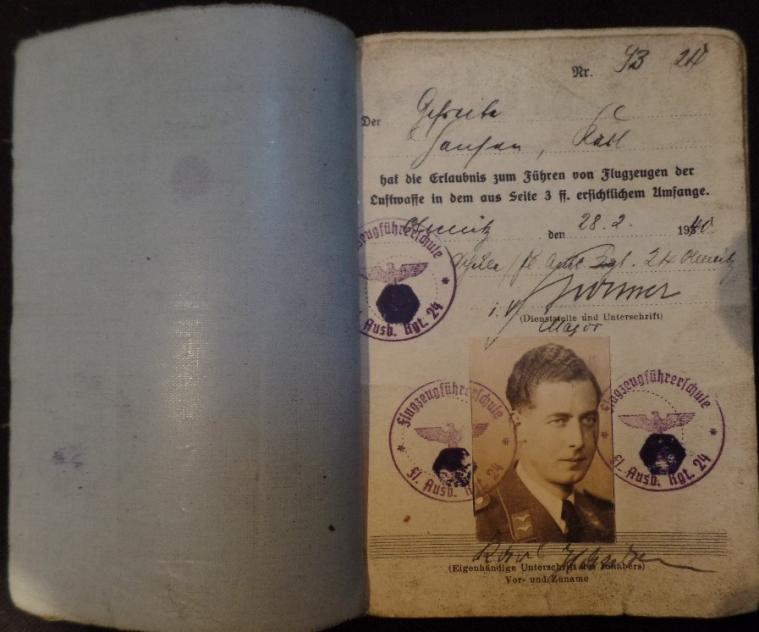 Nr. 93 24
Der Gefreite
Hansen, Karl
hat die Erlaubnis zum Führen von Flugzeugen der
Luftwaffe in dem aus Seite 3 ff. ersichtlichem Umfange.
Olmütz den 28. 2. 1940
24 Olmütz
i. V.
(Dienststelle und Unterschrift)
Major
Flugzeugführerschule
Fl. Ausb. Rgt. 24
Flugzeugführerschule
Fl. Ausb. Rgt. 24
Flugzeugführerschule
Fl. Ausb. Rgt. 24
Karl Hansen
(Eigenhändige Unterschrift des Inhabers)
Vor- und Zuname